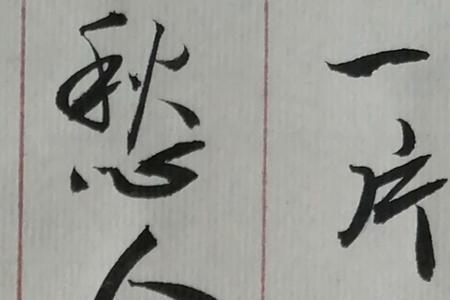 一片
愁人